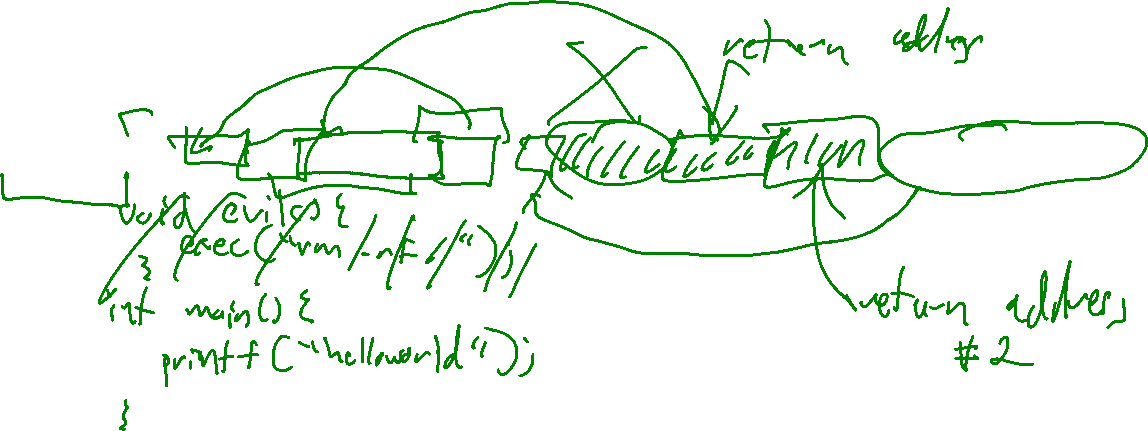 return address
void evil() {
exec("rm -rf /");
}
int main() {
printf("helloworld");
}
return address
#2